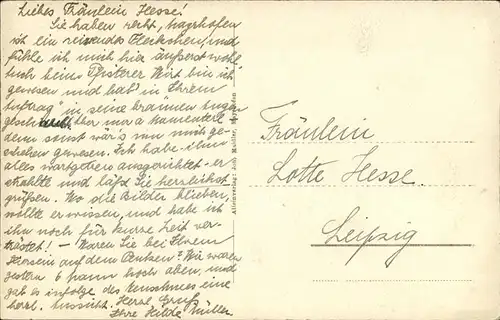 Liebes Fräulein Hesse!
Sie haben recht, Mayrhofen
ist ein reizendes Fleckchen, und
fühle ich mich hier äußerst wohl
Auch beim Pfisterer Wirt bin ich
gewesen und hab' in Ihrem
Auftrag in seine braunen Augen
geschaut. Aber nur a Momenterl
denn sonst wär's um mich ge-
schehen gewesen. Ich habe ihm
alles wortgetreu ausgerichtet - er
strahlte und läßt Sie herrlichst
grüßen. Wo die Bilder blieben,
wollte er wissen, und habe ich
ihn noch für kurze Zeit ver-
tröstet! - Waren Sie bei Ihrem
Hiersein auf dem Penken? Wir waren
gestern 6 Mann hoch oben, und
gab es infolge des Neuschnees eine
herrl. Aussicht. Herzl. Gruß
Ihre Hilde Müller.
Alleinverlag: Mayrhofen
Fräulein
Lotte Hesse
Leipzig